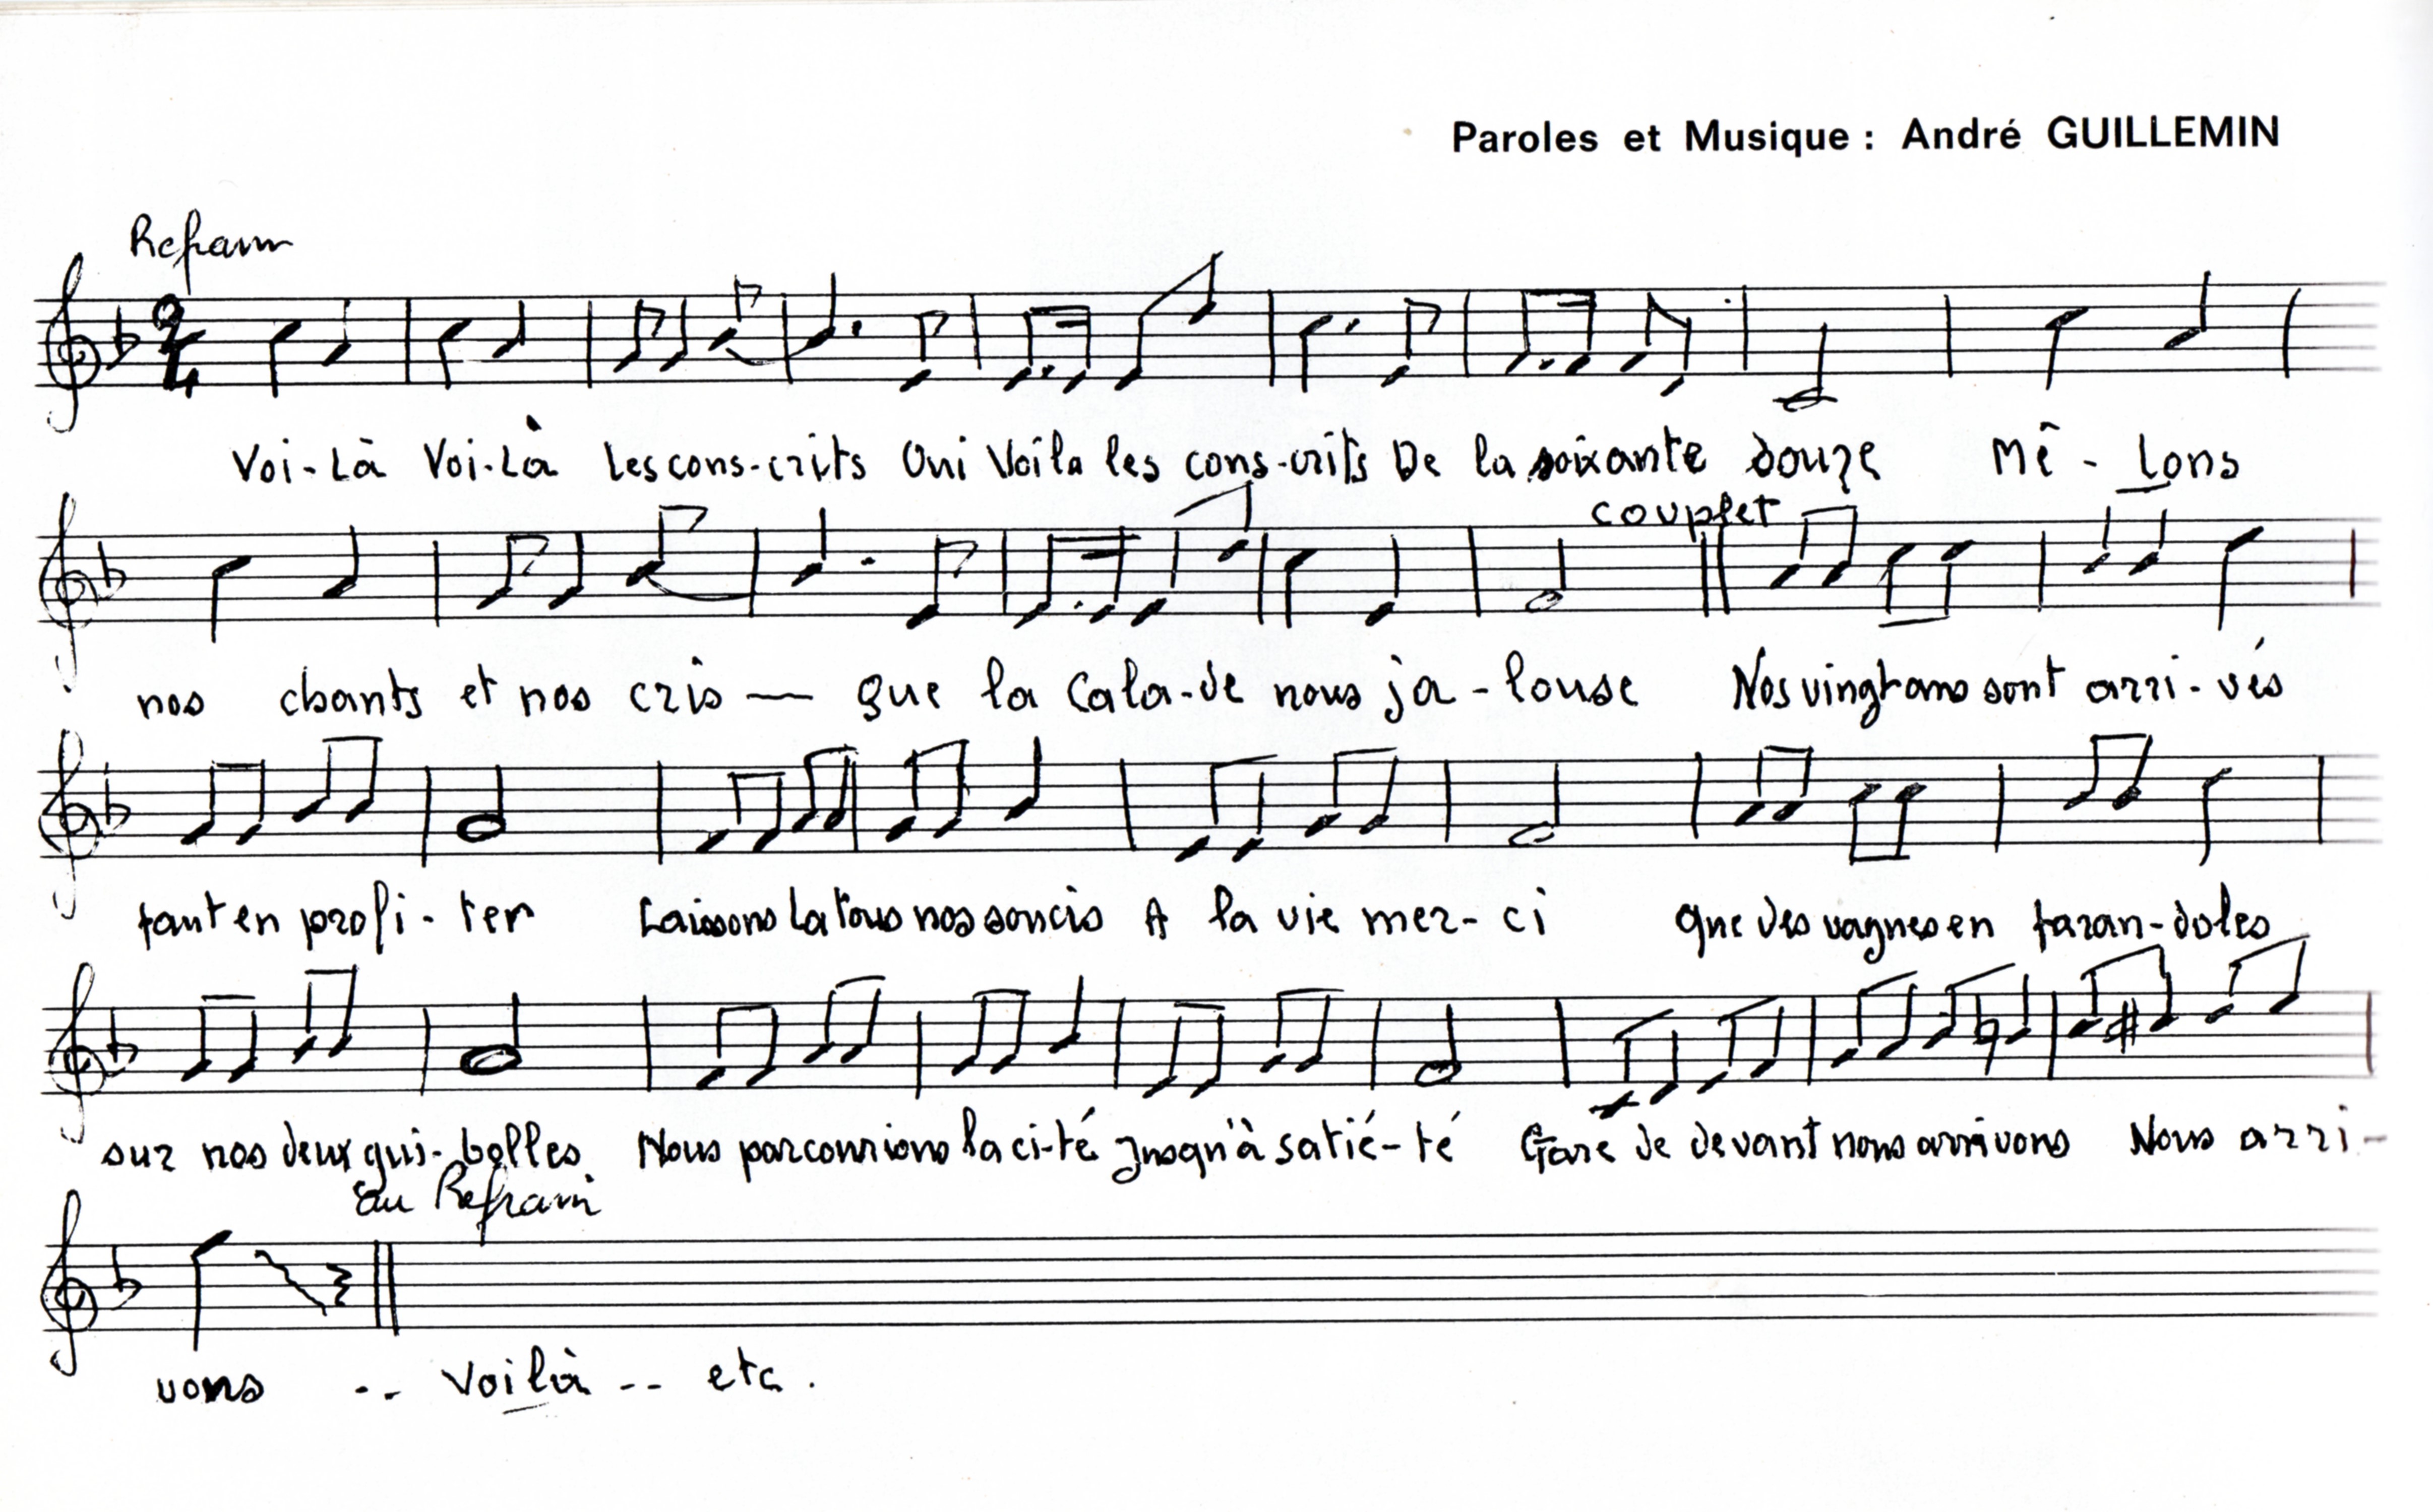 Paroles et Musique : André GUILLEMIN
Refrain
2/4
Voi-Là Voi-Là Les cons-crits Oui Voilà les cons-crits De la soixante douze Mê - Lons
couplet
nos chants et nos cris — que la Cala-de nous ja - louse Nos vingt ans sont arri-vés
faut en profi-ter Laissons La tous nos soucis A la vie mer-ci que des vagues en faran-doles
sur nos deux gui-bolles Nous parcourions la ci-té Jusqu'à satié-té Gare de devant nous arrivons Nous arri-
au Refrain
vons .. Voilà -- etc.